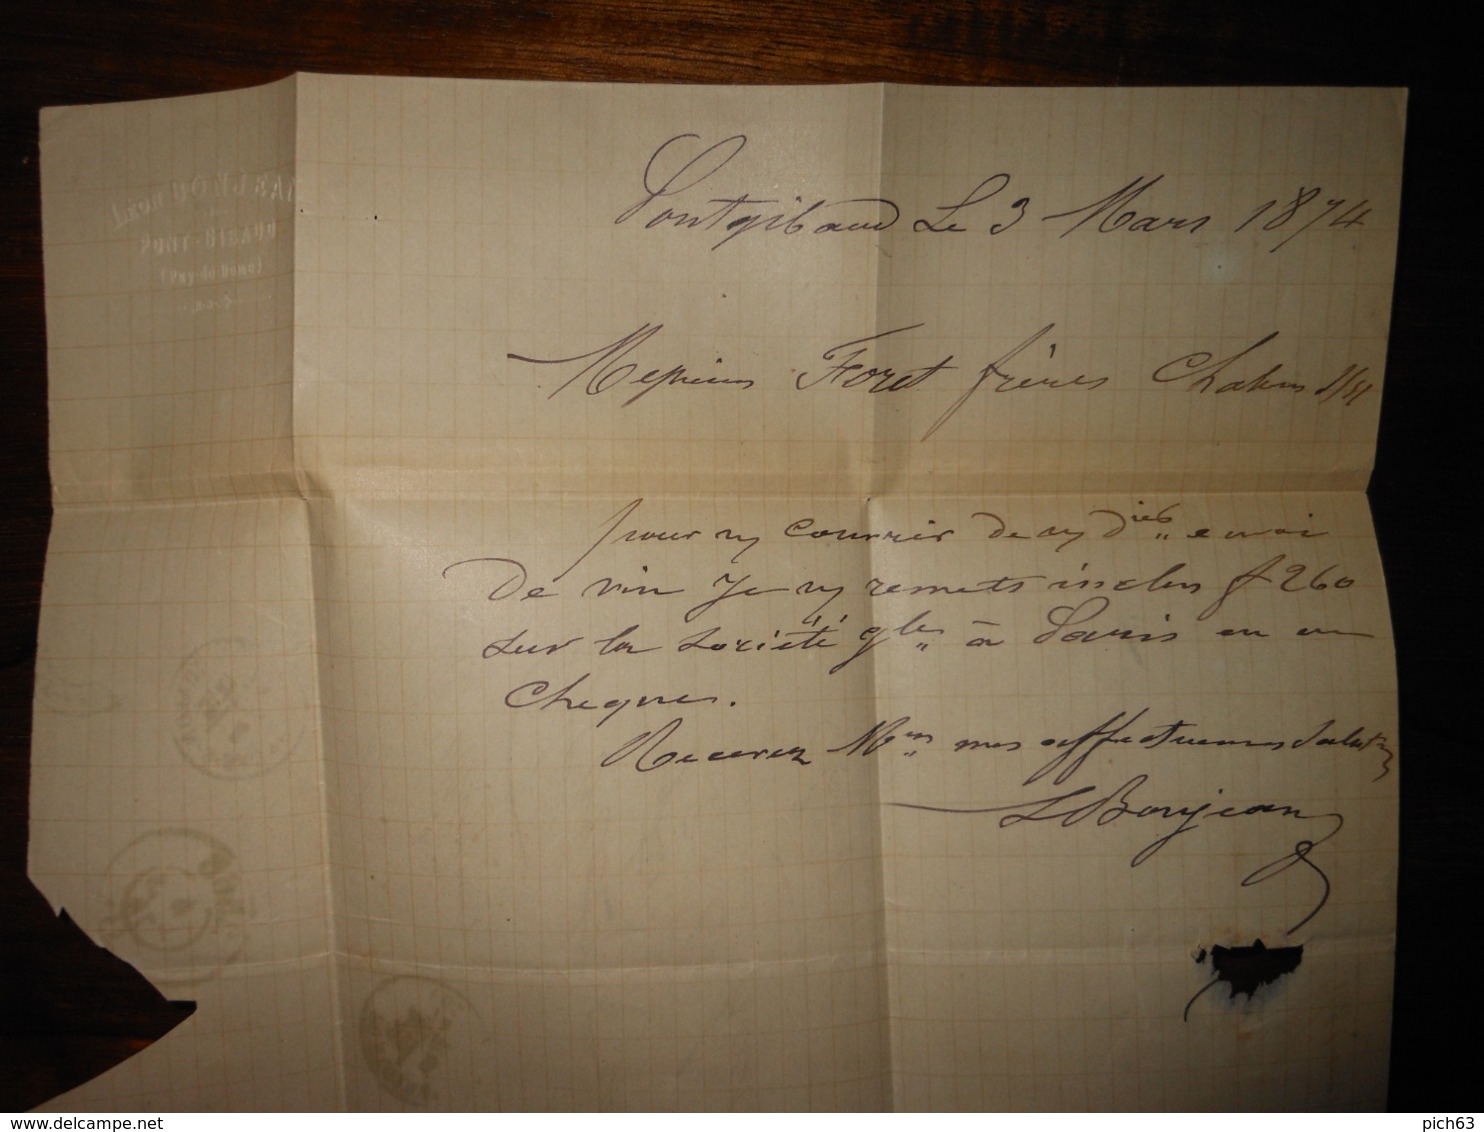 Léon BONJEAN
PONT-GIBAUD
(Puy-de-Dôme)
Pontgibaud Le 3 Mars 1874
Messieurs Foret frères Chalon s/s
pour vy couvrir de vy dres envoi
De vin Je vy remets inclus f 260
sur la société gle à Paris en un
Cheques.
Recevez Mrs mes affectueuses Salut
L Bonjean
pich63